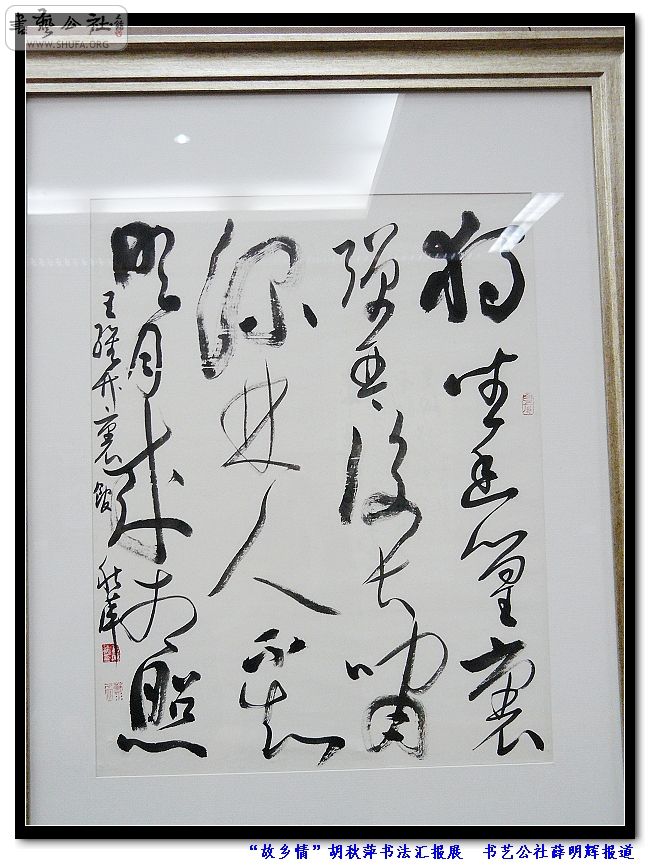 書藝公社
WWW.SHUFA.ORG
独坐幽篁裏
彈琴復长嘯
深林人不知
明月来相照
王維竹裏館 秋萍
“故乡情”胡秋萍书法汇报展 书艺公社薛明辉报道